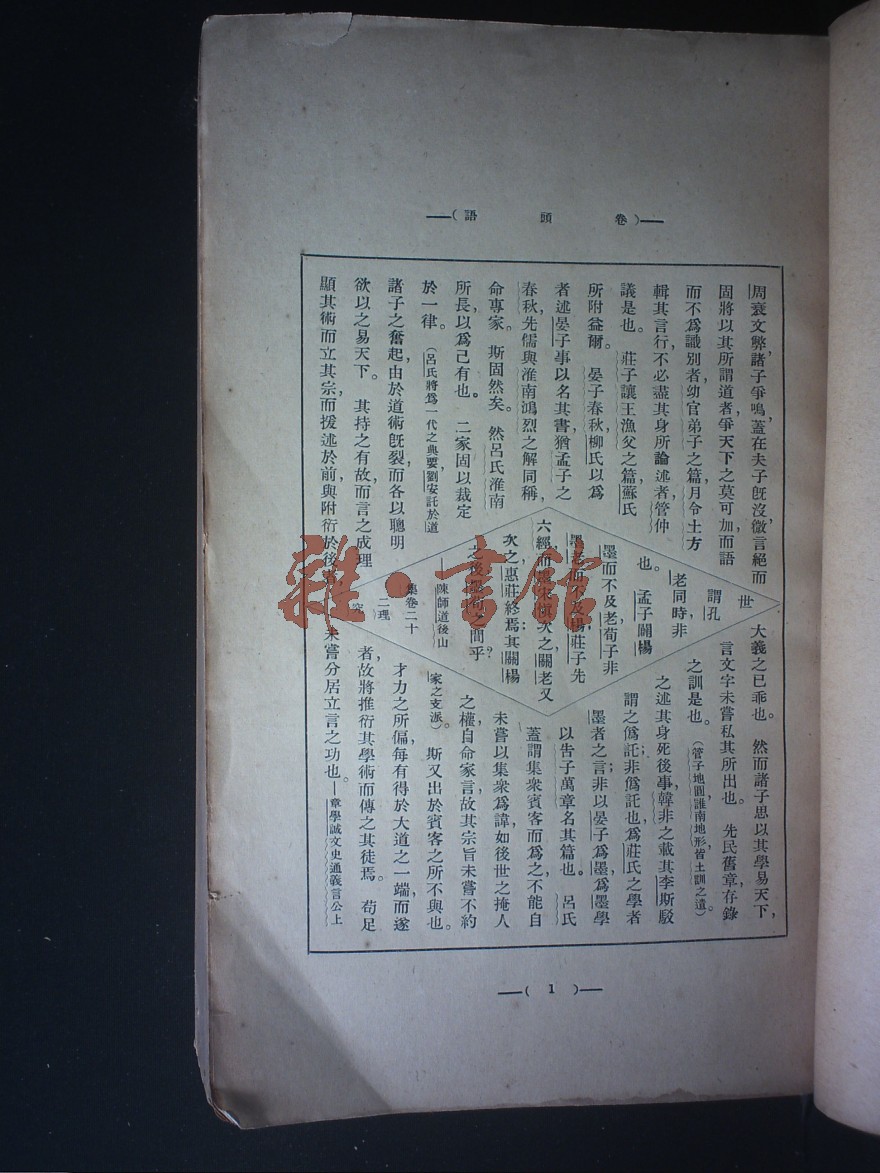 卷頭語
周衰文弊,諸子爭鳴,蓋在夫子旣沒,微言絕而大義之已乖也。然而諸子思以其學易天下,
固將以其所謂道者,爭天下之莫可加,而語言文字未嘗私其所出也。先民舊章,存錄
而不爲識別者,幼官弟子之篇,月令土方之訓是也。(管子地圓,淮南地形,皆土訓之遺)。
輯其言行,不必盡其身所論述者,管仲之述其身死後事,韓非之載其李斯駁
議是也。莊子讓王漁父之篇,蘇氏謂之僞託;非僞託也,爲莊氏之學者
所附益爾。晏子春秋,柳氏以爲墨者之言;非以晏子爲墨,爲墨學
者述晏子事以名其書,猶孟子之以告子萬章名其篇也。呂氏
春秋,先儒與淮南鴻烈之解同稱,蓋謂集衆賓客而爲之,不能自
命專家。斯固然矣。然呂氏淮南未嘗以集衆爲諱,如後世之掩人
所長以爲己有也。二家固以裁定之權,自命家言,故其宗旨未嘗不約
於一律。(呂氏將爲一代之典要,劉安託於道家之支派)。斯又出於賓客之所不與也。
諸子之奮起,由於道術旣裂,而各以聰明才力之所偏,每有得於大道之一端,而遂
欲以之易天下。其持之有故,而言之成理者,故將推衍其學術而傳之其徒焉。苟足
顯其術而立其宗,而援述於前,與附衍於後者,未嘗分居立言之功也。—章學誠文史通義言公上
世
謂孔
老同時非
也。孟子闢楊
墨而不及老,荀子非
墨老而不及楊,莊子先
六經而墨宋愼次之,關老又
次之,惠莊終焉。其關楊
之後,墨荀之間乎?
陳師道後山
集卷二十
二理
究
1
雜·書館